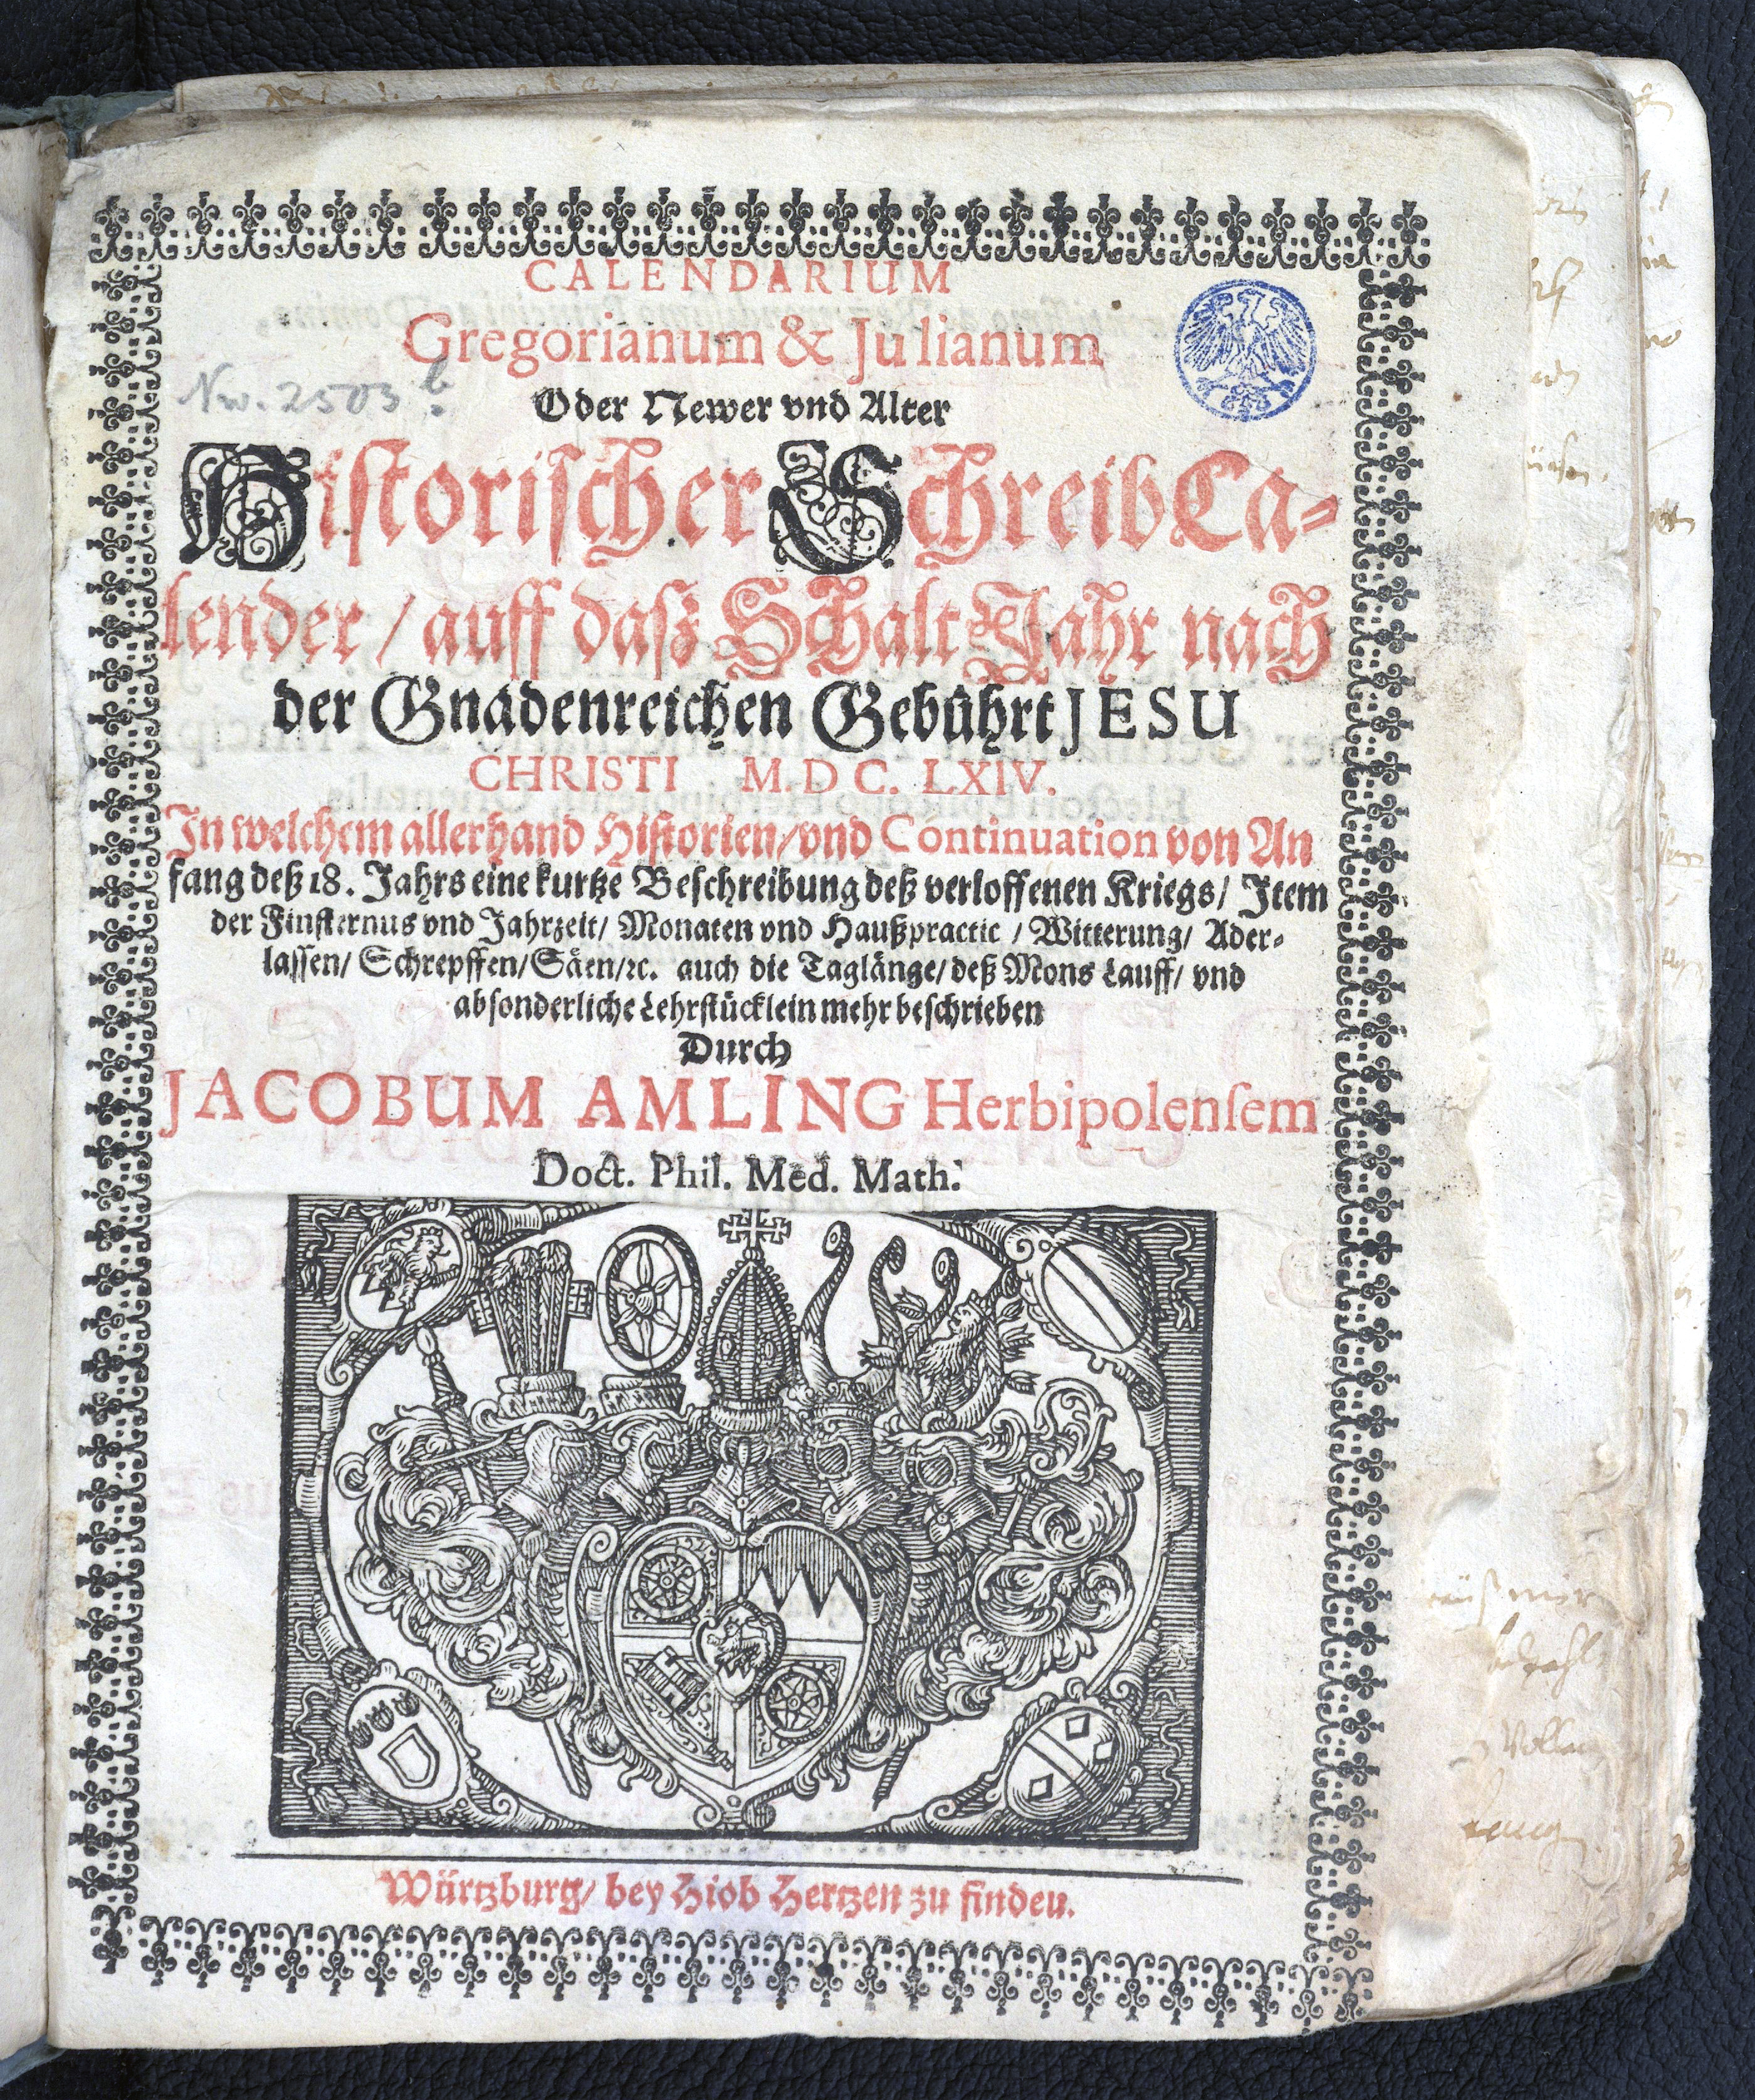 CALENDARIUM
Gregorianum & Julianum
Nw. 2503 b.
Oder Newer vnd Alter
Historischer Schreib Ca-
lender / auff dasz Schalt Jahr nach
der Gnadenreichen Gebührt JESU
CHRISTI M.DC.LXIV.
In welchem allerhand Historien/ vnd Continuation von An
fang deß 18. Jahrs eine kurtze Beschreibung deß verloffenen Kriegs/ Item
der Finsternus vnd Jahrzeit/ Monaten vnd Haußpractic / Witterung/ Ader-
lassen/ Schrepffen/ Säen/ ꝛc. auch die Taglänge/ deß Mons Lauff/ vnd
absonderliche Lehrstücklein mehr beschrieben
Durch
JACOBUM AMLING Herbipolensem
Doct. Phil. Med. Math:
Würtzburg/ bey Hiob Hertzen zu finden.